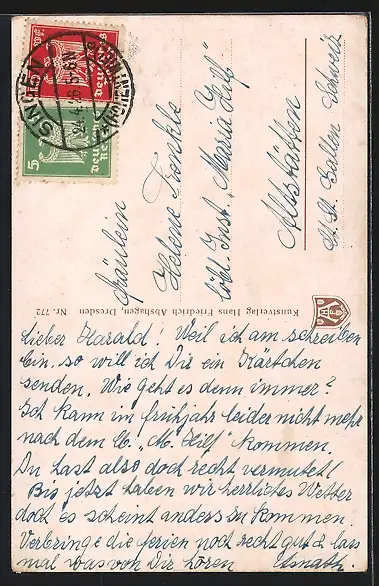 SINGEN (HOHENTWIEL)
24.4.26
5
Deutsches Reich
Deutsches Reich
Fräulein
Helene Künkle
löbl. Inst. „Maria Hilf"
Altstätten
Kt. St. Gallen Schweiz
Kunstverlag Hans Friedrich Abshagen, Dresden Nr. 772
Lieber Harald! Weil ich am schreiben
bin, so will ich Dir ein Kärtchen
senden. Wie geht es denn immer?
Ich kann im Frühjahr leider nicht mehr
nach dem lb. „M. Hilf" kommen.
Du hast also doch recht vermutet!
Bis jetzt haben wir herrliches Wetter
doch es scheint anders zu kommen.
Verbringe die Ferien noch recht gut & lass
mal was von Dir hören